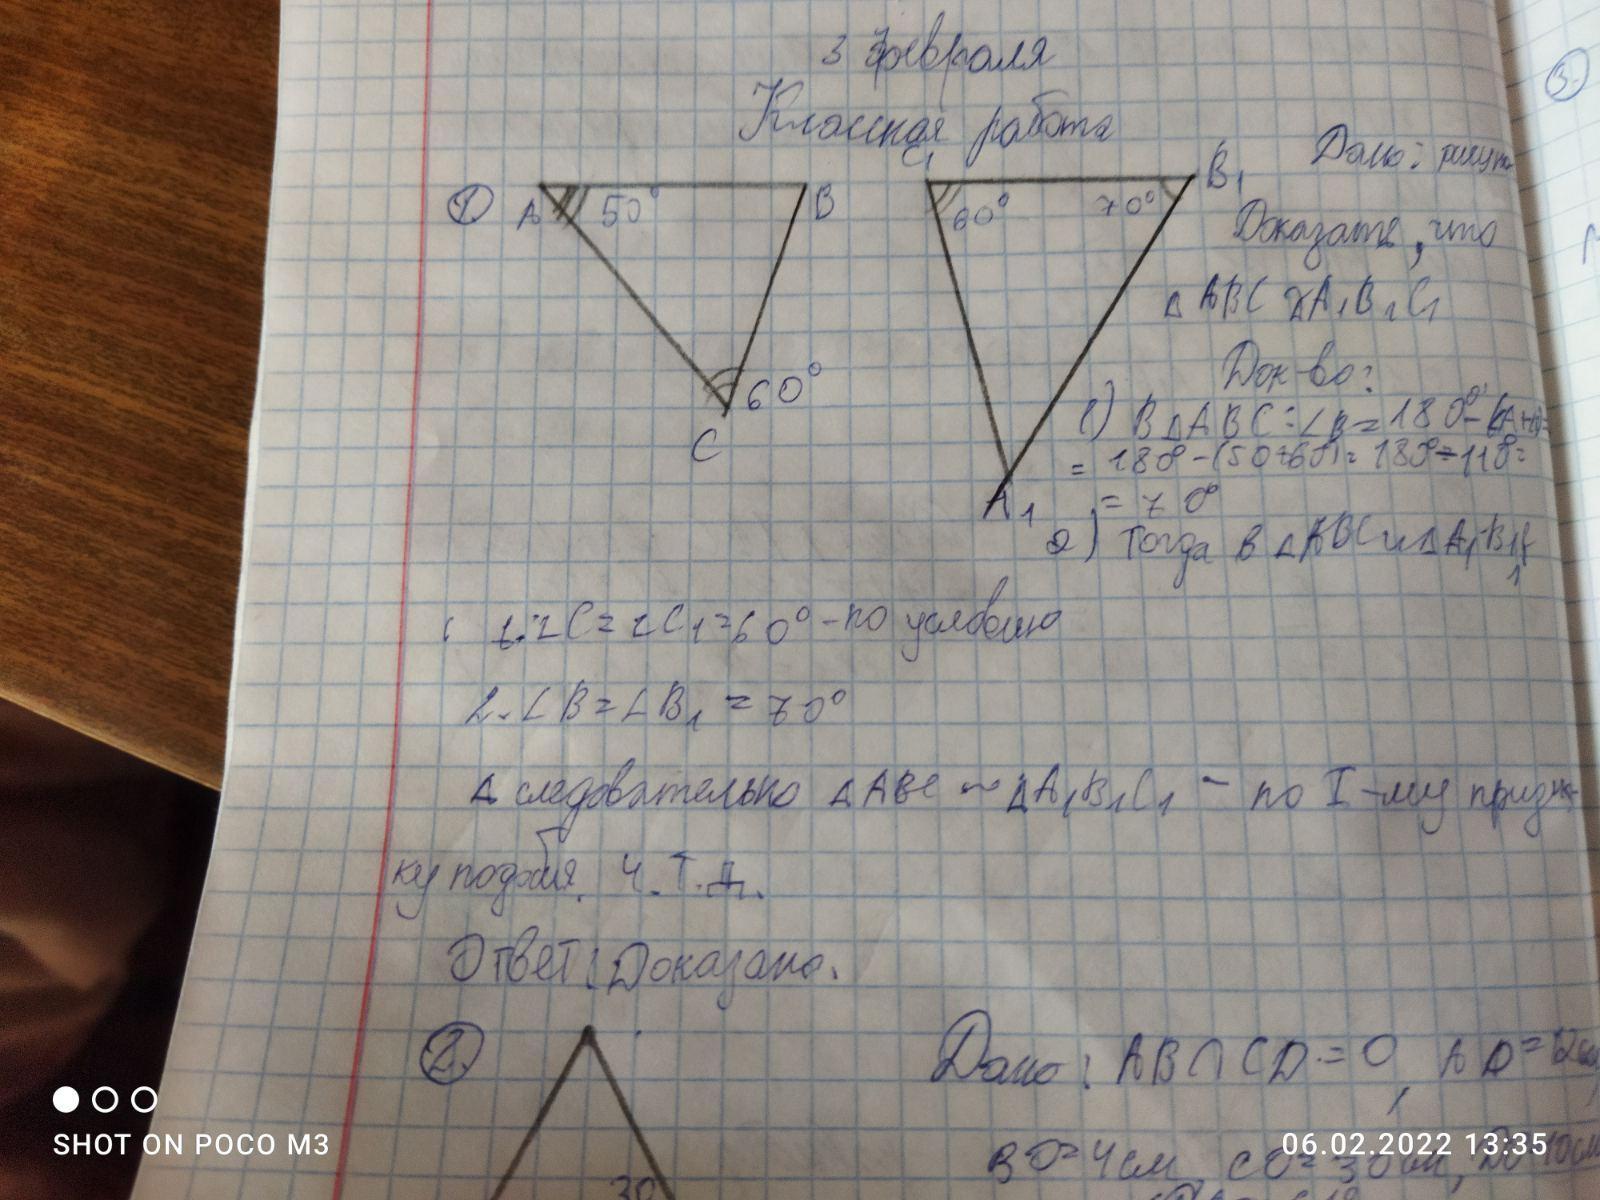 3 февраля
Классная работа
1) A 50° B
C 60°
C1 60° 70° B1
A1
Дано: рисун
Доказать, что
△ ABC ~ A1B1C1
Док-во:
1) В △ABC: ∠B = 180° - (∠A+∠C)=
= 180° - (50+60°) = 180° - 110° =
= 70°
2) Тогда в △ABC и △A1B1C1
1. ∠C = ∠C1 = 60° - по условию
2. ∠B = ∠B1 = 70°
△ следовательно △ABC ~ △A1B1C1 - по I-му призна-
ку подобия. Ч.Т.Д.
Ответ: Доказано.
2. Дано: AB ∩ CD = O, AD = 12см,
30 BO = 4см, CO = 30см, DO = 10см
3.
SHOT ON POCO M3
06.02.2022 13:35